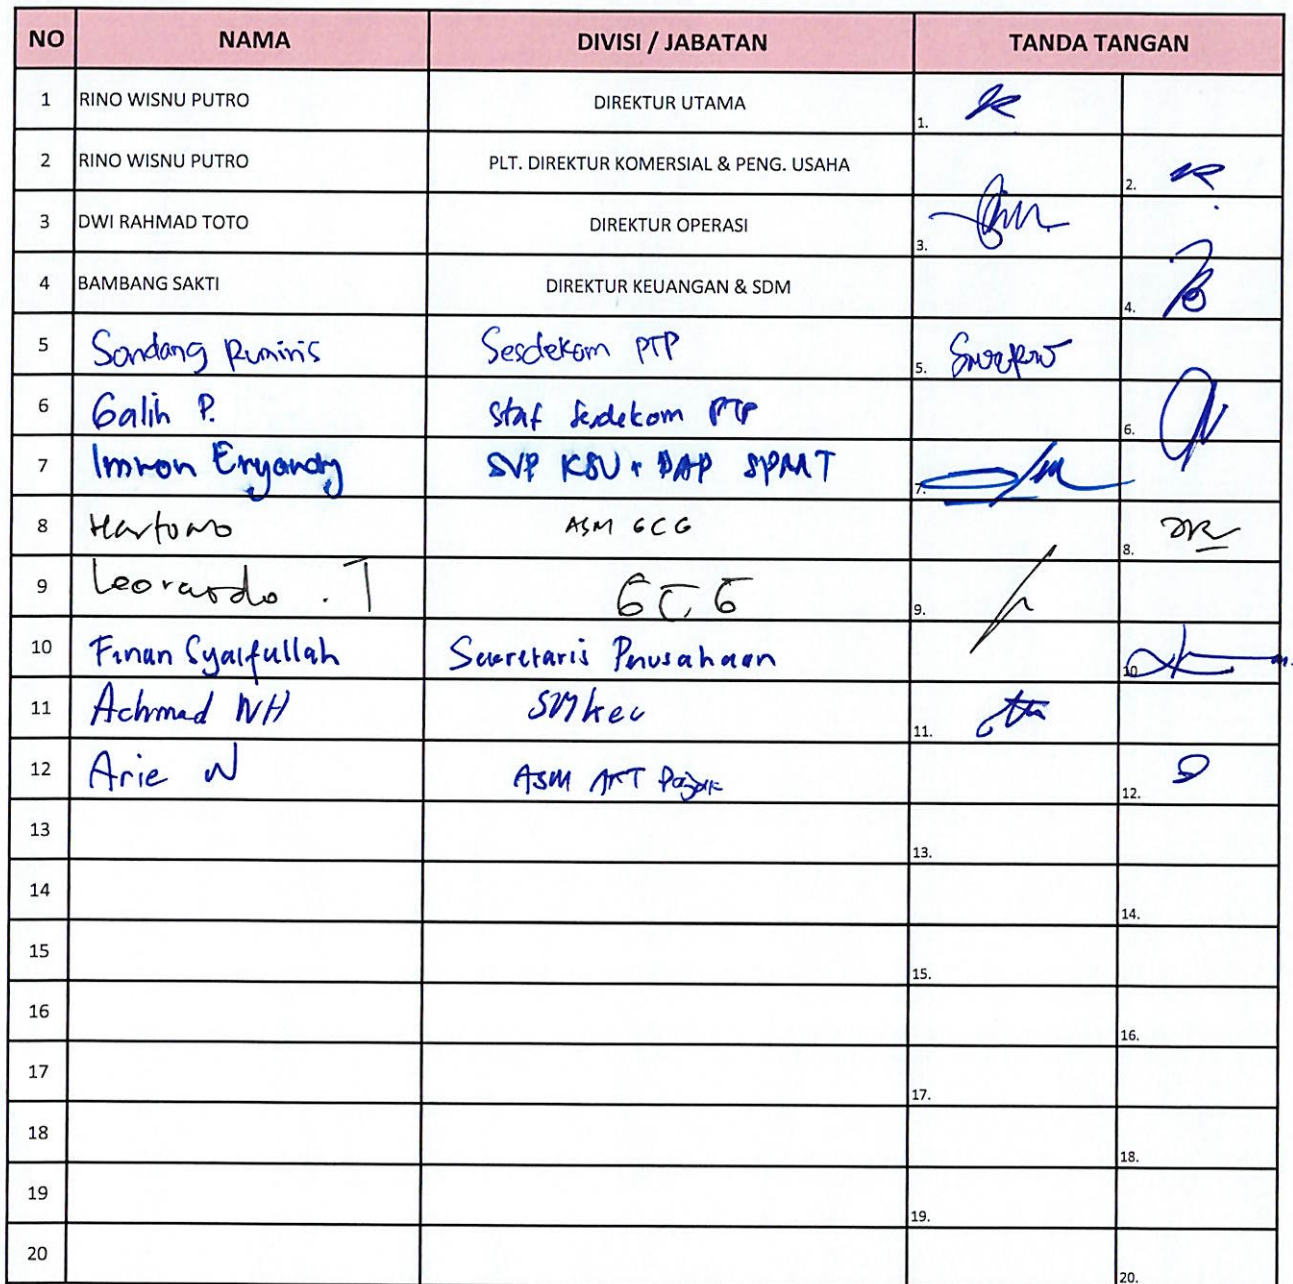 NO NAMA DIVISI / JABATAN TANDA TANGAN
1 RINO WISNU PUTRO DIREKTUR UTAMA 1.
2 RINO WISNU PUTRO PLT. DIREKTUR KOMERSIAL & PENG. USAHA 2.
3 DWI RAHMAD TOTO DIREKTUR OPERASI 3.
4 BAMBANG SAKTI DIREKTUR KEUANGAN & SDM 4.
5 Sondang Ruminis Sesdekom PTP 5.
6 Galih P. Staf Sesdekom PTP 6.
7 Imron Eryandy SVP KSU + DAP SPMT 7.
8 Hartono ASM GCG 8.
9 Leonardo . T GCG 9.
10 Finan Syaifullah Sekretaris Perusahaan 10.
11 Achmad NH SM keu 11.
12 Arie N ASM AKT Pajak 12.
13 13.
14 14.
15 15.
16 16.
17 17.
18 18.
19 19.
20 20.